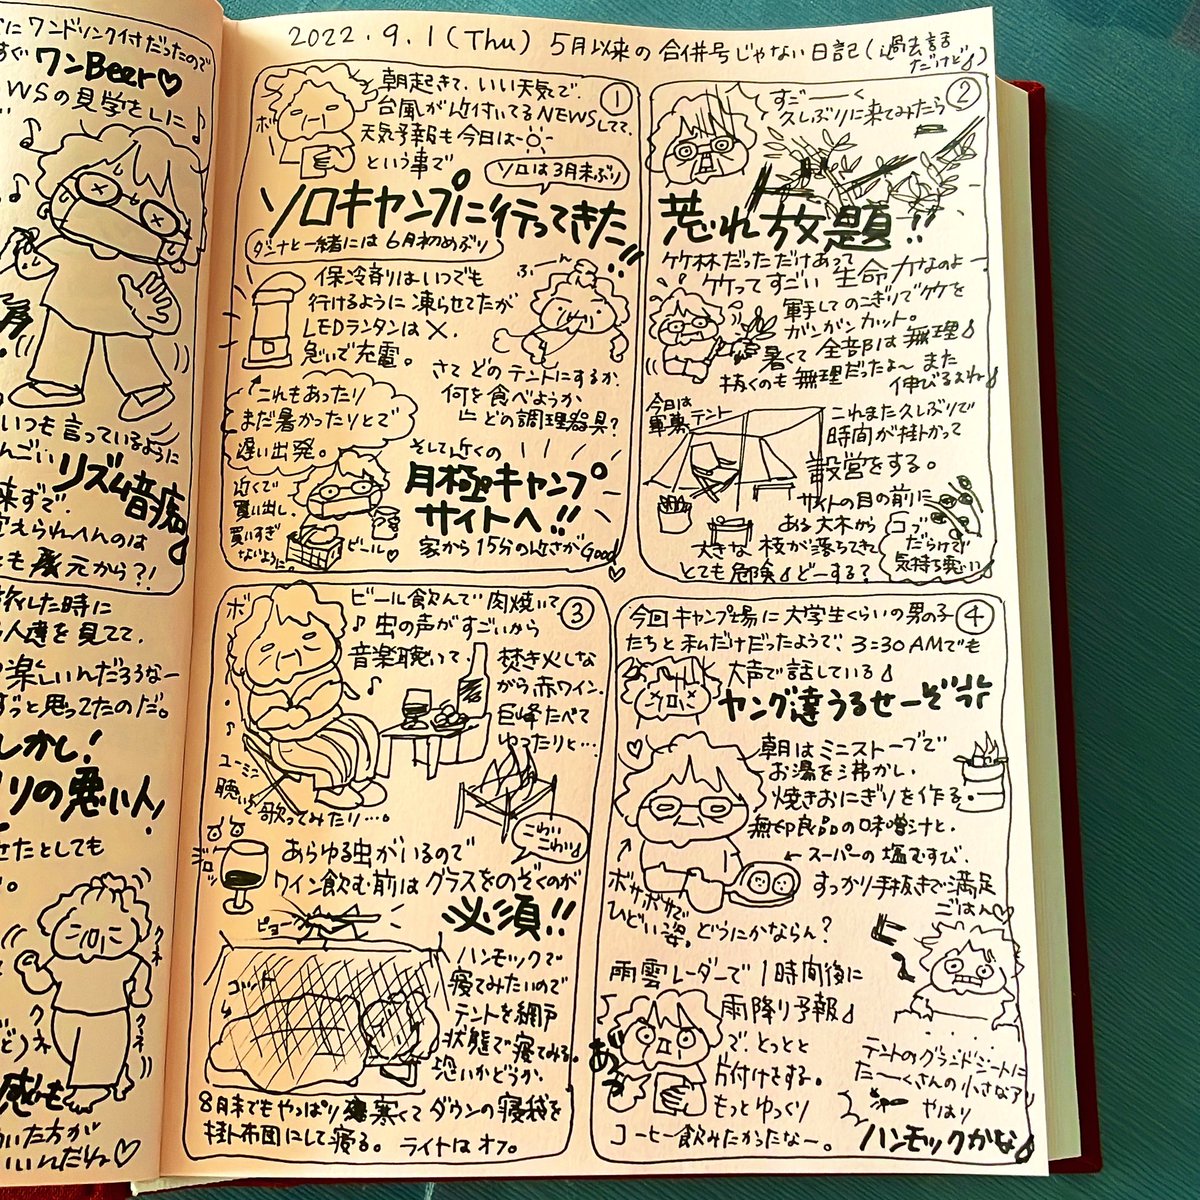 にワンドリンク付だったので
すぐワンBeer♡
NEWSの見学をしに
いつも言っているように
リズム音痴
来ずで、
覚えられへんのは
とも 元から?!
旅した時に
人達を見てて、
楽しいんだろうなー
ずっと思ってたのだ。
しかし!
ノリの悪い人!
せたとしても
感も
方が
いいんだね♡
2022.9.1(Thu) 5月以来の合併号じゃない日記(過去話だけど♪)
①
朝起きて、いい天気で、
台風が近付いてるNEWSしてて、
天気予報も今日は
という事で
ソロは3月末ぶり
ソロキャンプに行ってきた!!
ダンナと一緒には6月初めぶり
保冷剤りはいつでも
行けるように凍らせてたが
LEDランタンは×.
急いで充電。
ふーん
さてどのテントにするか、
何を食べようか
どの調理器具?
これもあったり
まだ暑かったりとで
遅い出発。
近くで
買い出し、
買いすぎ
ないように。
ビール♡
そして近くの
月極キャンプ
サイトへ!!
家から15分の近さがGood♡
②
すごーーく
久しぶりに来てみたら
荒れ放題!!
竹林だっただけあって
竹ってすごい生命力なのよー
軍手してのこぎりで竹を
ガンガンカット。
暑くて全部は無理
抜くのも無理だったよ〜また
伸びるよね
今日は
軍幕テント
これまた久しぶりで
時間が掛かって
設営をする。
サイトの目の前に
ある大木から
大きな枝が落ちてきて
とても危険 どーする?
コブ
だらけで
気持ち悪い
③
ボー
ビール飲んで肉焼いて
♪虫の声がすごいから
音楽聴いて、
焚き火しな
がら赤ワイン、
巨峰たべて
ゆったりと…
ユーミン
聴いて歌ってみたり…。
こわい
こわい
ギロッ
あらゆる虫がいるので
ワイン飲む前はグラスをのぞくのが
必須!!
ピョーン
ハンモックで
寝てみたいので
テントを網戸
状態で寝てみる。
恐いかどうか、
コット
8月末でもやっぱり寒くてダウンの寝袋を
掛布団にして寝る。ライトはオフ。
④
今回キャンプ場に大学生くらいの男の子
たちと私だけだったようで、3:30AMでも
大声で話している
ヤング達うるせーぞ
朝はミニストーブで
お湯を沸かし、
焼きおにぎりを作る。
無印良品の味噌汁と、
←スーパーの塩むすび、
すっかり手抜きで満足
ごはん♡
ボサボサで
ひどい姿。どうにかならん?
雨雲レーダーで1時間後に
雨降り予報
で、とっとと
片付けをする。
もっとゆっくり
コーヒー飲みたかったなー。
テントのグランドシートに
たーくさんの小さなアリ
やはり
ハンモックかな